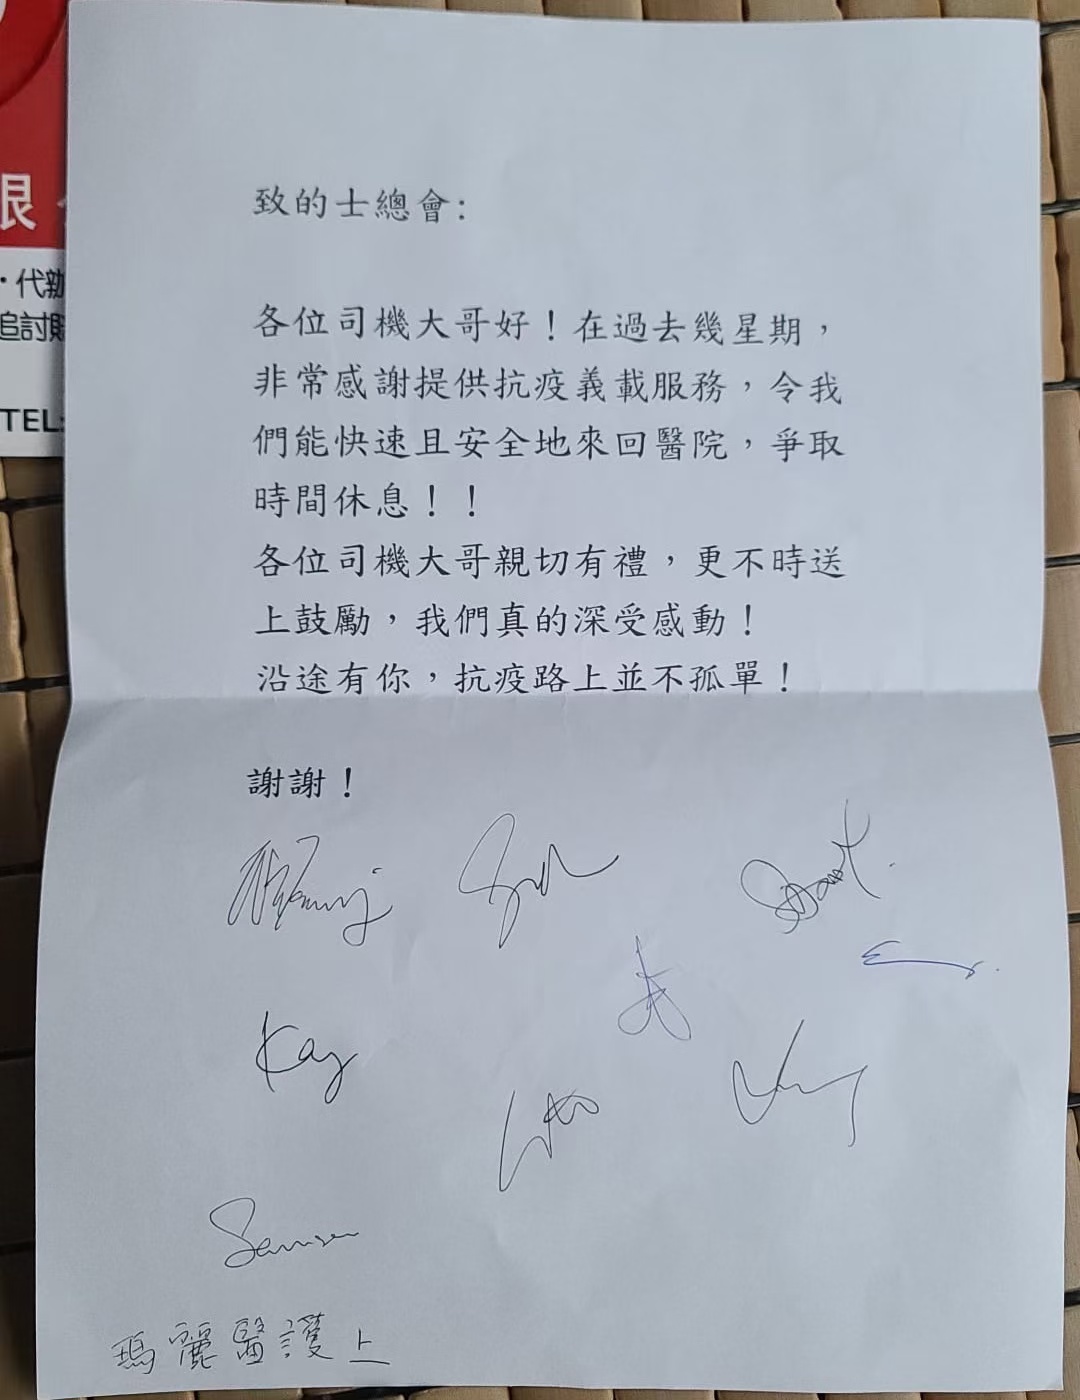 致的士總會:
各位司機大哥好！在過去幾星期，
非常感謝提供抗疫義載服務，令我
們能快速且安全地來回醫院，爭取
時間休息！！
各位司機大哥親切有禮，更不時送
上鼓勵，我們真的深受感動！
沿途有你，抗疫路上並不孤單！
謝謝！
Kay
瑪麗醫護上
代
追討
TEL: